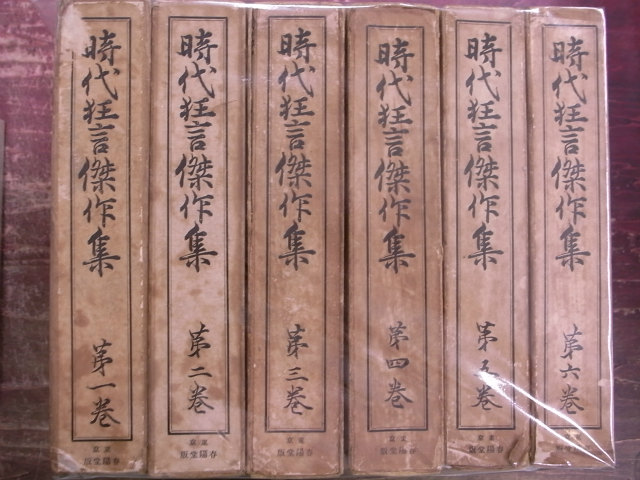 時代狂言傑作集 第一巻
東京
春陽堂版
時代狂言傑作集 第二巻
東京
春陽堂版
時代狂言傑作集 第三巻
東京
春陽堂版
時代狂言傑作集 第四巻
東京
春陽堂版
時代狂言傑作集 第五巻
東京
春陽堂版
時代狂言傑作集 第六巻